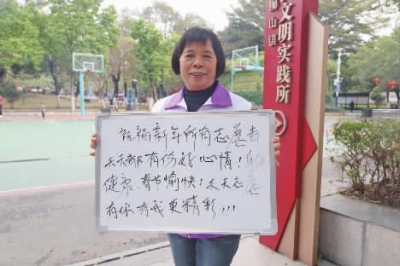 祝福新年所有志愿者
天天都有份好心情！身体
健康，春节愉快！天天志愿
有你有我更精彩！！！
山镇
文明实践所